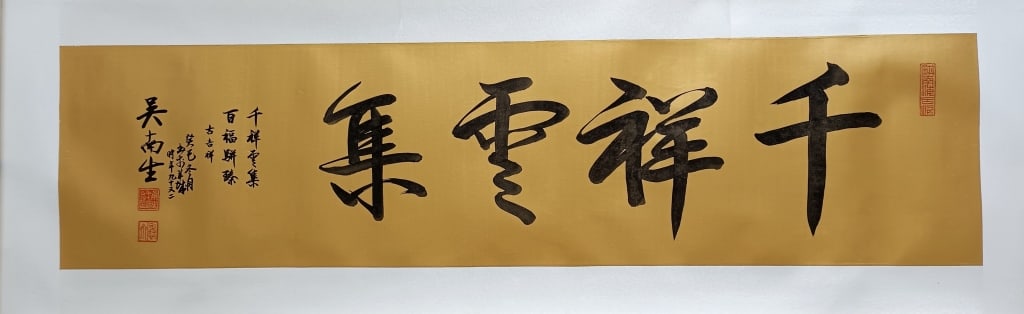 千祥雲集
千祥雲集
百福駢臻
古吉祥
癸巳冬月
吴南生